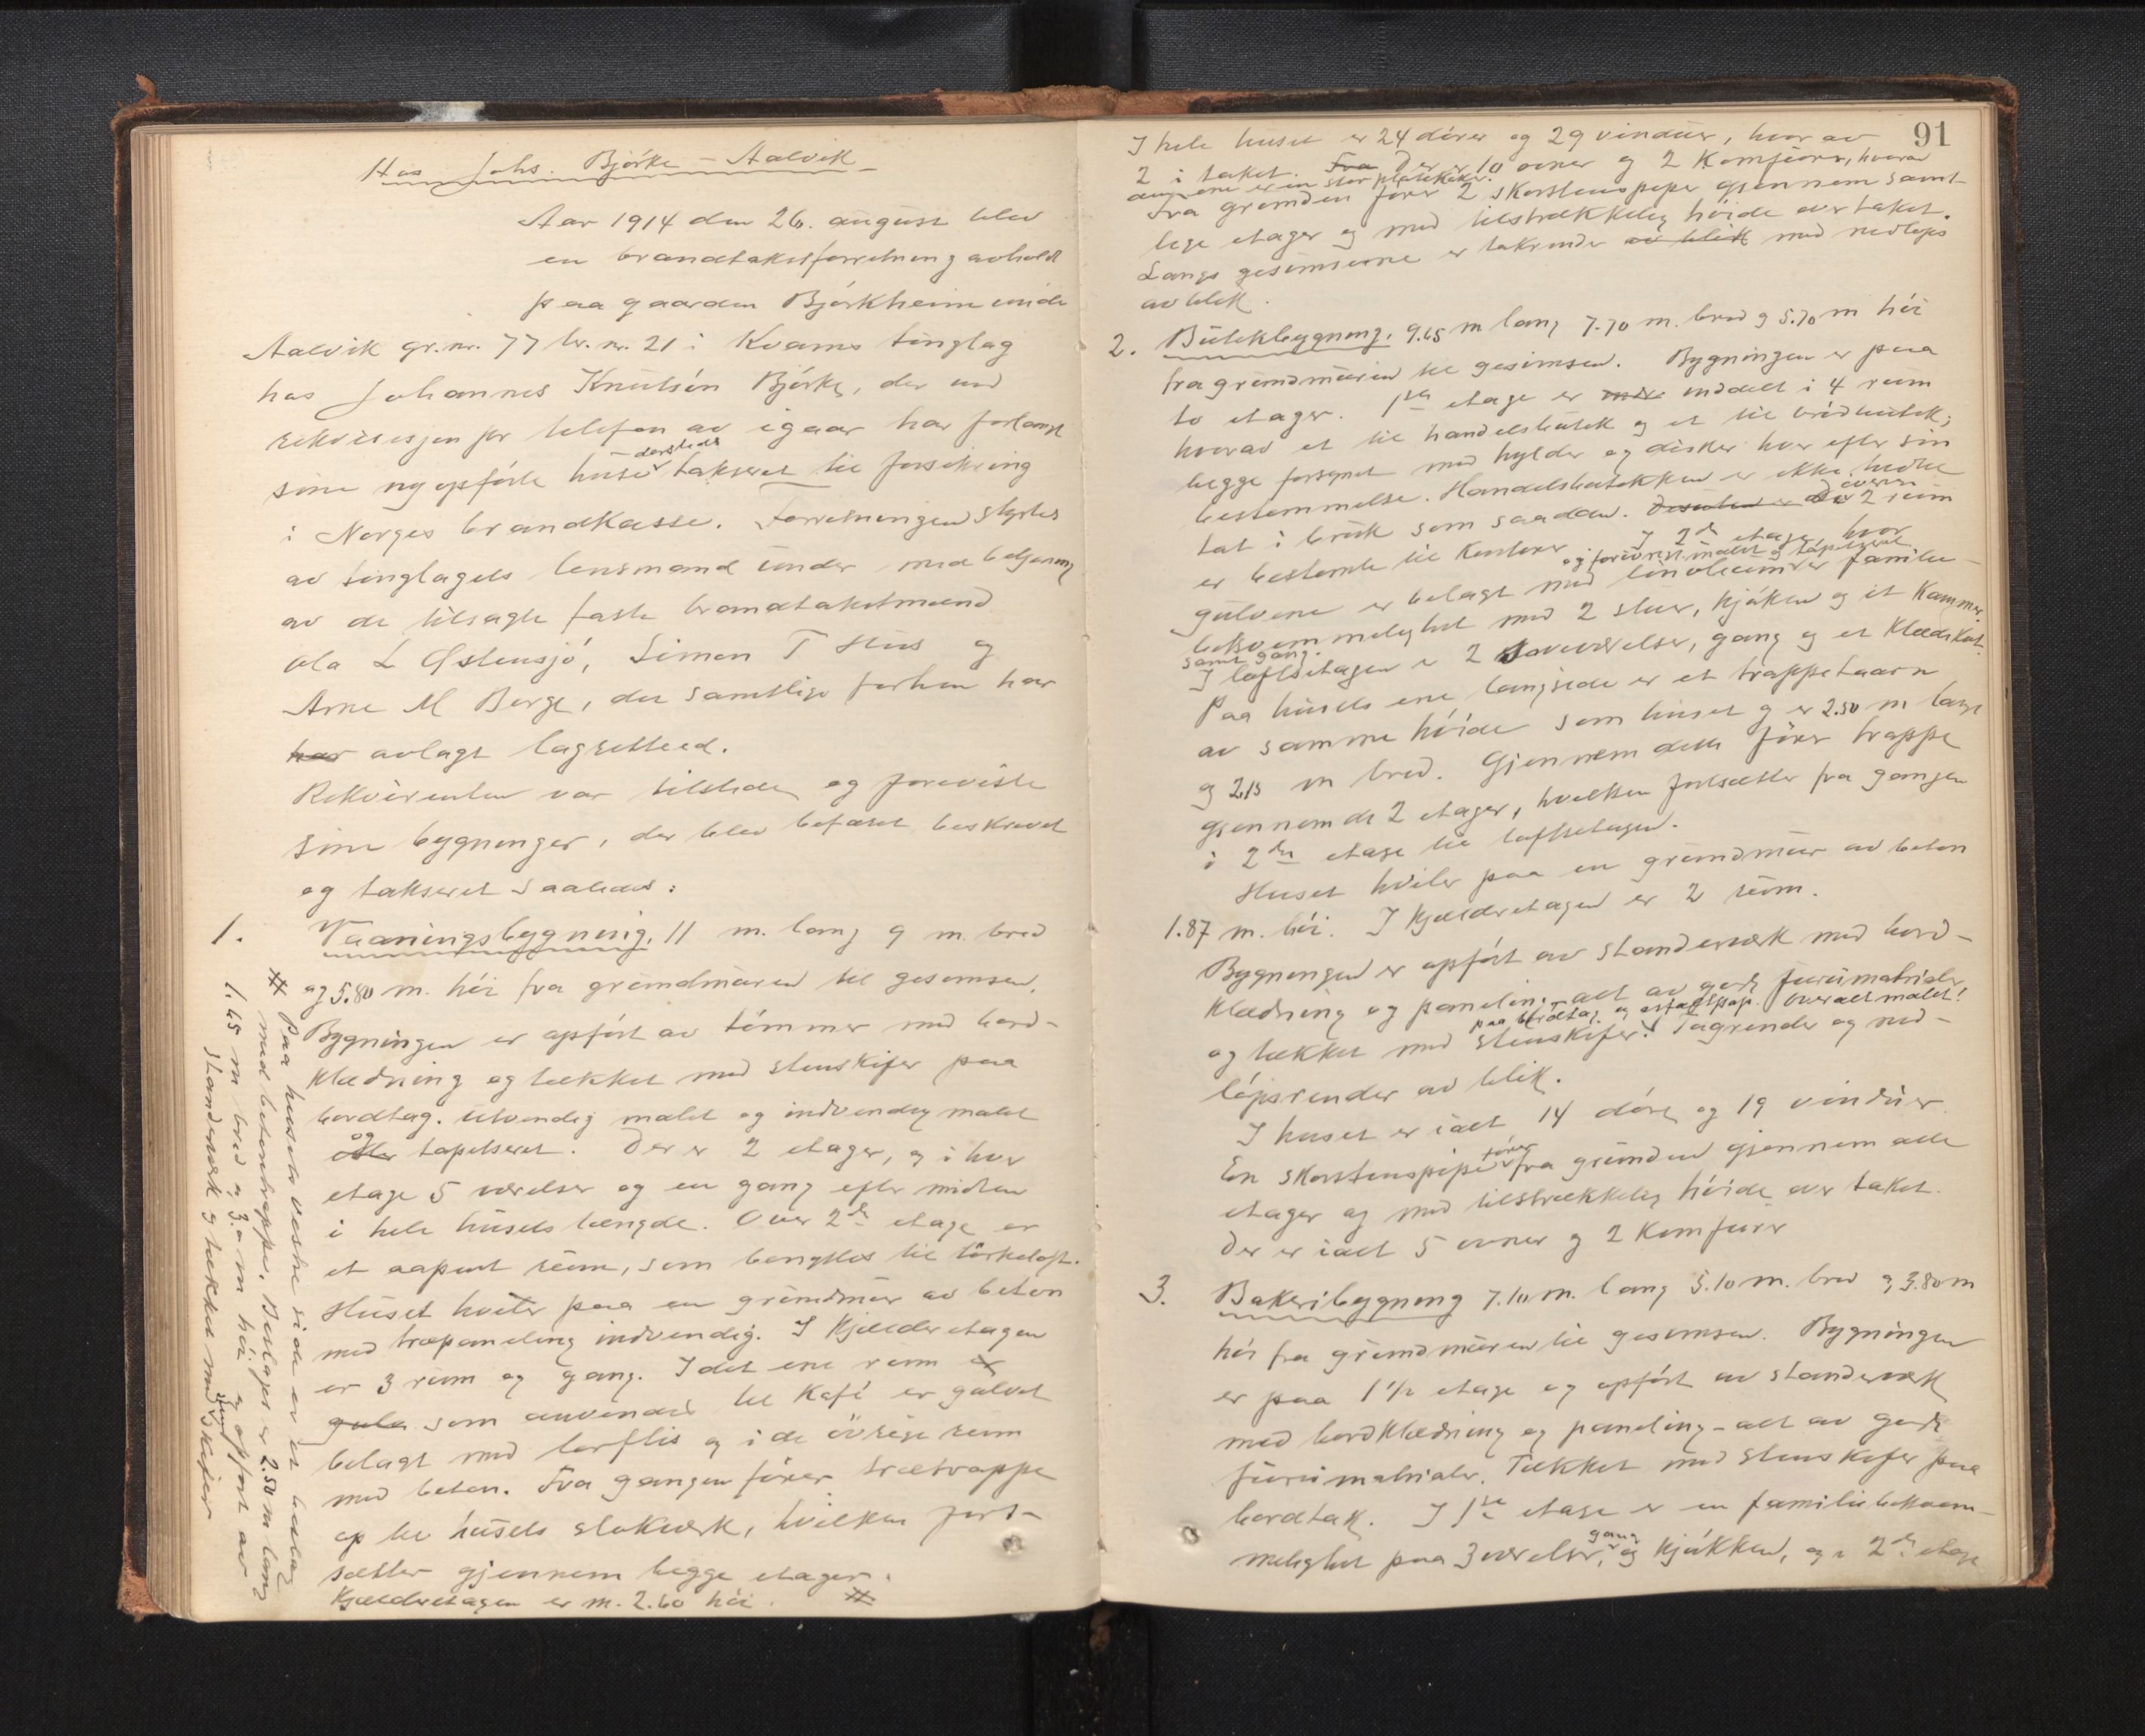 Hos Johs. Bjørke – Aalvik
Aar 1914 den 26. august blev
en brandtakstforretning avholdt
paa gaarden Bjørkheim under
Aalvik gr.nr. 77 br.nr. 21 i Kvams tinglag
hos Johannes Knutsøn Bjørke, der ved
rekvisisjon pr telefon av igaar har forlangt
sine nyopførte huse dersteds takseret til forsikring
i Norges brandkasse. Forretningen styrtes
av tinglagets lensmand under med betjening
av de tilsagte faste brandtakstmænd
Ola L Østensjø, Simon T Hus og
Arne M Berge, der samtlige forhen har
har avlagt lagrettesed.
Rekvirenten var tilstede og foreviste
sine bygninger, der blev befaret beskrevet
og takseret saaledes:
1. Vaaningsbygning, 11 m. lang 9 m. bred
og 5.80 m. høi fra grundmuren til gesimsen.
Bygningen er opført av tømmer med bord-
klædning og tækket med stenskifer paa
bordtag. Utvendig malet og indvendig malet
og eller tapetseret. Der er 2 etager, og i hver
etage 5 værelser og en gang efter midten
i hele husets længde. Over 2den etage er
et aapent rum, som benyttes til tørkeloft.
Huset hviler paa en grundmur av beton
med træpaneling indvendig. I Kjælderetagen
er 3 rum og gang. I det ene rum er
gulv som anvendes til Kafé er gulvet
belagt med terflis og i de øvrige rum
med beton. Fra gangen fører trætrappe
op til husets stokværk, hvilken fort-
sætter gjennem begge etager.
Kjælderetagen er m. 2.60 høi. #
# Paa husets vestre side er et bislag
med betontrappe. Bislaget er 2.50 m lang
1.45 m bred og 3.0 m høi og opført av
standerverk og tækket med skifer
91
I hele huset er 24 døre og 29 vinduer, hvor av
2 i taket. Fra Der er 10 ovner og 2 Komfurer, hvorav
den ene er en stor platekokr.
Fra grunden fører 2 skorstenspiper gjennem samt-
lige etager og med tilstrækkelig høide over taket.
Langs gesimserne er takrender av blik med nedløps
av blik.
2. Butikbygning, 9.65 m lang 7.70 m. bred og 5.70 m høi
fra grundmuren til gesimsen. Bygningen er paa
to etager. 1ste etage er inddelt i 4 rum
hvorav et til handelsbutik og et til brødbutik,
begge forsynet med hylder og disker hver efter sin
bestemmelse. Handelsbutikken er ikke hidtil
tat i bruk som saadan. Desuten er de øvrige 2 rum
er bestemte til Kontorer I 2den etage hvor
og forøvrigt malet og tapetseret
gulvene er belagt med linoleum er familie-
bekvemmelighet med 2 stuer, kjøken og et Kammer
samt gang.
I loftsetagen er 2 soveværelser, gang og et Klædekot.
Paa husets ene langside er et trappetaarn
av samme høide som huset og er 2.50 m lang
og 2.15 m bred. Gjennem dette fører trappe
gjennem de 2 etager, hvilken fortsætter fra gangen
i 2den etage til loftsetagen.
Huset hviler paa en grundmur av beton
1.87 m. høi. I Kjælderetagen er 2 rum.
Bygningen er opført av standerværk med bord-
klædning og paneling – alt av gode furumatrialer
paa bordtag og asfaltpap. Overalt malet!
og tækket med stenskifer. Tagrender og ned-
løpsrender av blik.
I huset er ialt 14 døre og 19 vinduer
En skorstenspipe fører fra grunden gjennem alle
etager og med tilstrækkelig høide over taket.
Der er ialt 5 ovner og 2 Komfurer
3. Bakeribygning 7.10 m. lang 5.10 m. bred og 3.80 m
høi fra grundmuren til gesimsen. Bygningen
er paa 1 1/2 etage og opført av standerværk
med bordklædning og paneling – alt av gode
furumatrialer. Tækket med stenskifer paa
bordtak. I 1ste etage er en familiebekvem-
melighet paa 3 værelser, gang og kjøkken, og i 2den etage